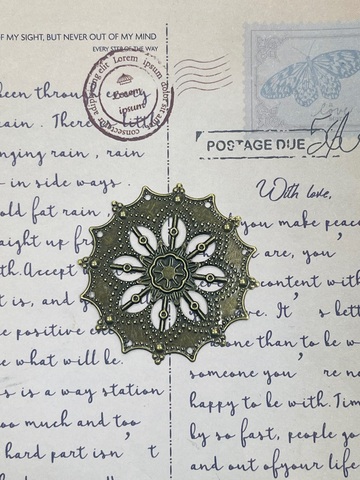 F MY SIGHT, BUT NEVER OUT OF MY MIND
EVERY STEP OF THE WAY
Lorem ipsum dolor sit adipiscing elit
consectetur
Lorem
ipsum
POSTAGE DUE
been through every
rain . There little
nging rain , rain
- in side ways
old fat rain ,
aight up fr
th.Accept
t is, and
e positive
e what will be.
s is a way station
oo much and too
hard part isn't
With love,
you make peace
are, you'
content with
e. It's bett
lone than to be w
someone you're no
happy to be with.Tim
by so fast, people go
and out ofyour life